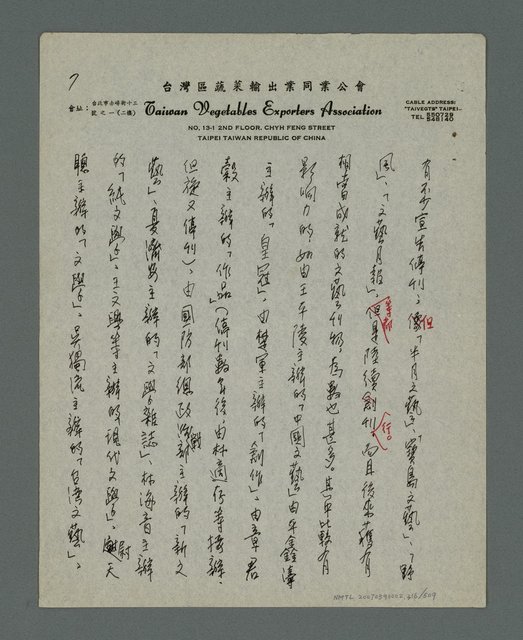 7
台灣區蔬菜輸出業同業公會
會址：台北市赤峰街十三號之一（二樓）
Taiwan Vegetables Exporters Association
NO. 13-1 2ND FLOOR. CHYH FENG STREET
TAIPEI TAIWAN REPUBLIC OF CHINA
CABLE ADDRESS:
"TAIVEGTS" TAIPEI
TEL 550729
548140
有不少宣告停刊，但像「半月文藝」、「寶島文藝」、「野
風」、「文藝月報」等，都但是陸續創刊行。而且後來獲有
相當成就的文藝刊物，為數也甚多。其中比較有
影响力的，如由王平陵主辦的「中國文藝」由平鑫濤
主辦的「皇冠」、由楚軍主辦的「創作」、由章君
穀主辦的「作品」（停刊數年後由林適存等接辦、
但旋又停刊）、由國防部總政戰部主辦的「新文
藝」、夏濟安主辦的「文學雜誌」、林海音主辦
的「純文學」、王文興等主辦的「現代文學」、尉天
聰主辦的「文學」、吳獨流主辦的「台灣文藝」、
NMTL 20070390002.316/509